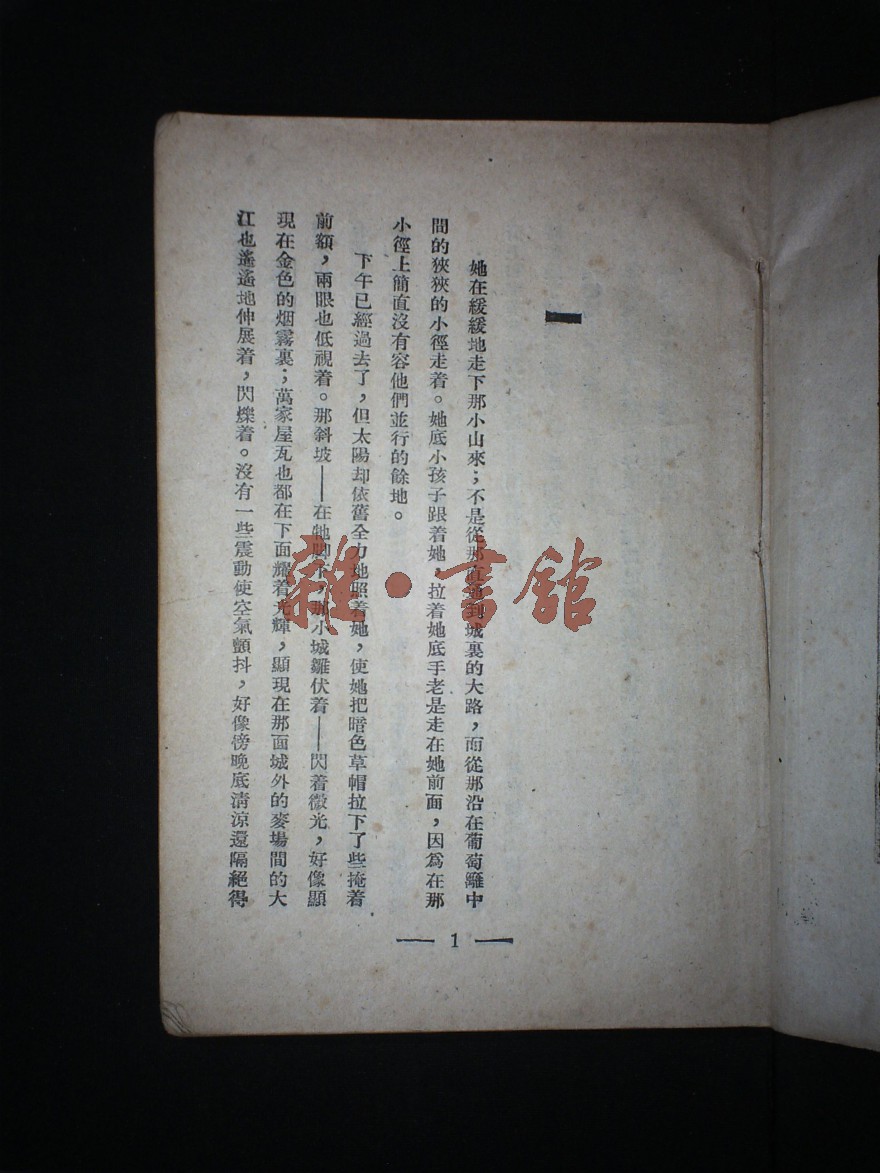 一
她在緩緩地走下那小山來;不是從那直通到城裏的大路,而從那沿在葡萄籬中
間的狹狹的小徑走着。她底小孩子跟着她,拉着她底手老是走在她前面,因爲在那
小徑上簡直沒有容他們並行的餘地。
下午已經過去了,但太陽却依舊全力地照着她,使她把暗色草帽拉下了些掩着
前額,兩眼也低視着。那斜坡——在牠脚下,那小城雛伏着——閃着微光,好像顯
現在金色的烟霧裏;萬家屋瓦也都在下面耀着光輝,顯現在那面城外的麥場間的大
江也遙遙地伸展着,閃爍着。沒有一些震動使空氣顫抖,好像傍晚底淸涼還隔絕得
— 1 —
雜·書館